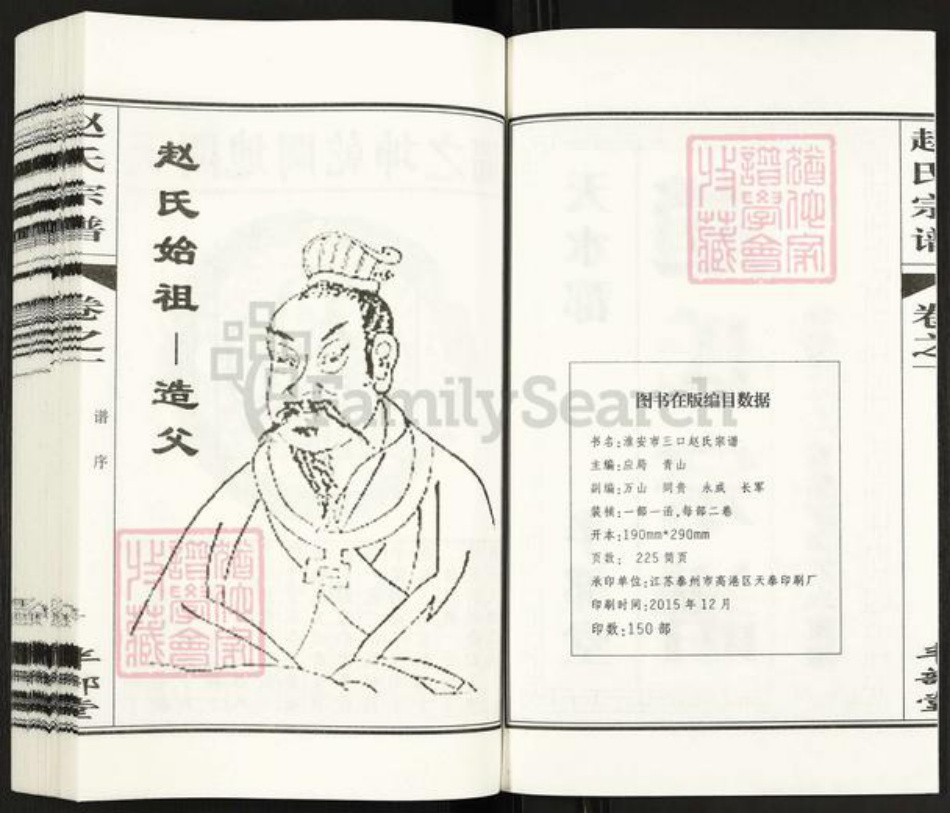 赵氏宗谱
卷之一
谱序
半部堂
赵氏始祖—造父
FamilySearch
图书在版编目数据
书名:淮安市三口赵氏宗谱
主编:应局 青山
副编:万山 同贵 永成 长军
装桢:一部一函,每部二卷
开本:190mm*290mm
页数: 225筒页
承印单位:江苏泰州市高港区天泰印刷厂
印刷时间:2015年12月
印数:150部
赵氏宗谱
卷之一
半部堂